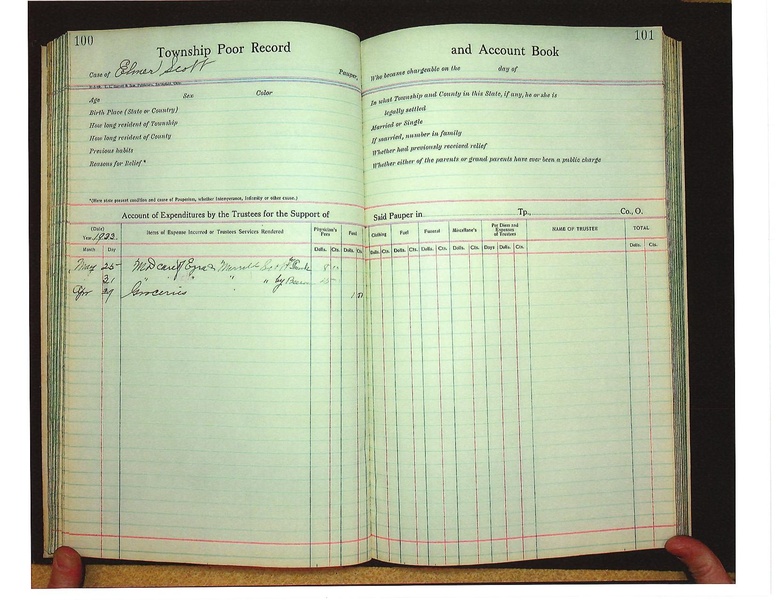 100
Township Poor Record
Case of Elmer Scott Pauper,
Age Sex Color
Birth Place (State or Country)
How long resident of Township
How long resident of County
Previous habits
Reasons for Relief*
*(Here state present condition and cause of Pauperism, whether Intemperance, Indecency or other cause.)
Account of Expenditures by the Trustees for the Support of
(Date)
Year 1923
Items of Expense Incurred or Trustees Services Rendered
Physician's Fees
Food
Month Day Dolls. Cts. Dolls. Cts.
May 25 M.D. care of Ezra
31 " " " by
Apr 29 Groceries
101
and Account Book
Who became chargeable on the day of
In what Township and County in this State, if any, he or she is
legally settled
Married or Single
If married, number in family
Whether had previously received relief
Whether either of the parents or grand parents have ever been a public charge
Said Pauper in Tp., Co., O.
Clothing Fuel Funeral Miscellan's Per Diem and Expenses of Trustees NAME OF TRUSTEE TOTAL
Dolls. Cts. Dolls. Cts. Dolls. Cts. Dolls. Cts. Days Dolls. Cts. Dolls. Cts.